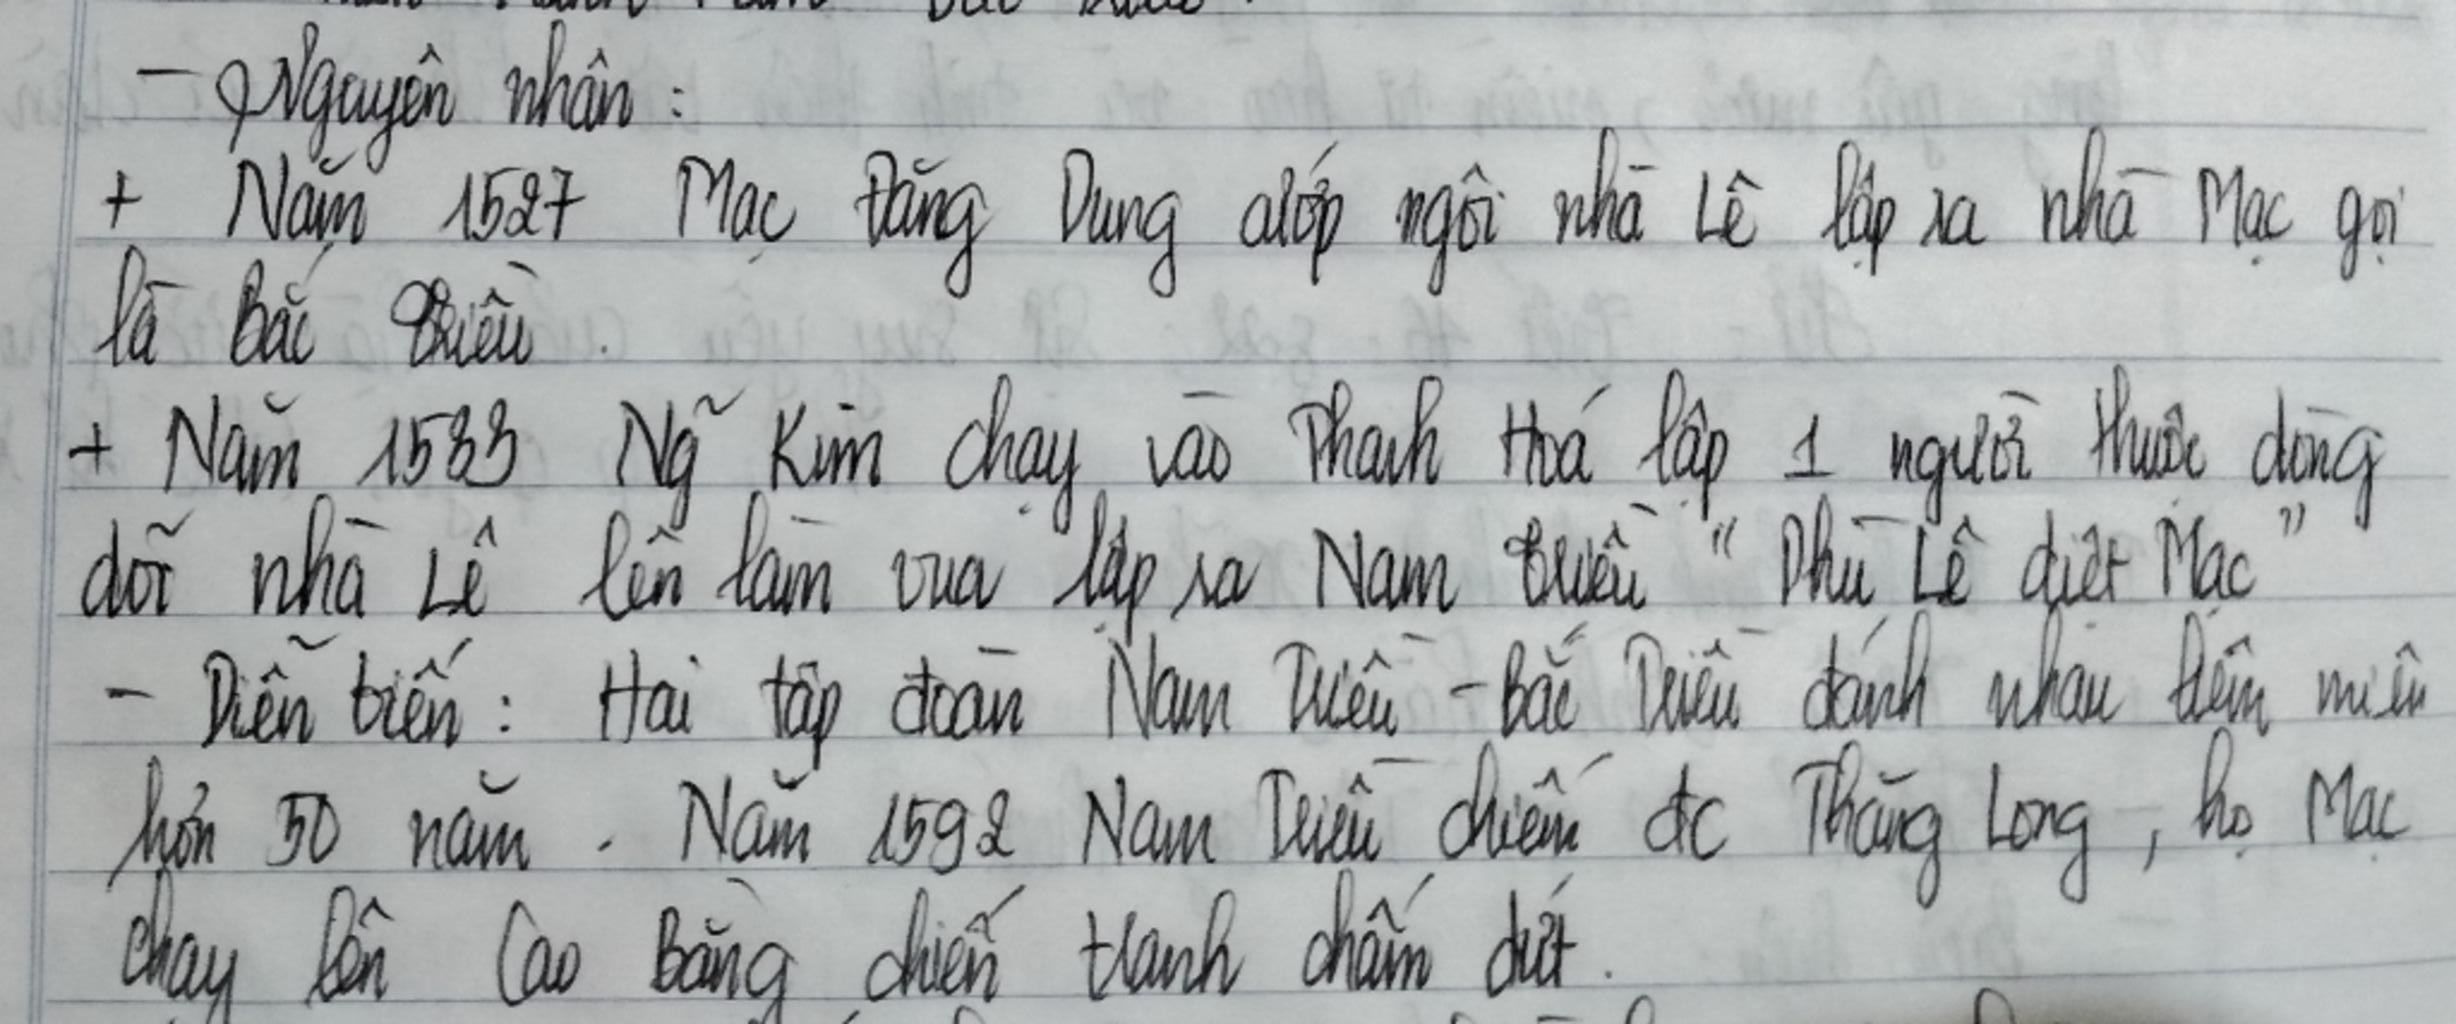 - Nguyên nhân :
+ Năm 1527 Mạc Đăng Dung cướp ngôi nhà Lê lập ra nhà Mạc gọi
là Bắc triều.
+ Năm 1533 Ng~ Kim chạy vào Thanh Hoá lập 1 người thuộc dòng
dõi nhà Lê lên làm vua lập ra Nam triều "Phù Lê diệt Mạc"
- Diễn biến : Hai tập đoàn Nam Triều - Bắc Triều đánh nhau liên miên
hơn 50 năm. Năm 1592 Nam Triều chiếm đc Thăng Long, họ Mạc
chạy lên Cao Bằng chiến tranh chấm dứt.